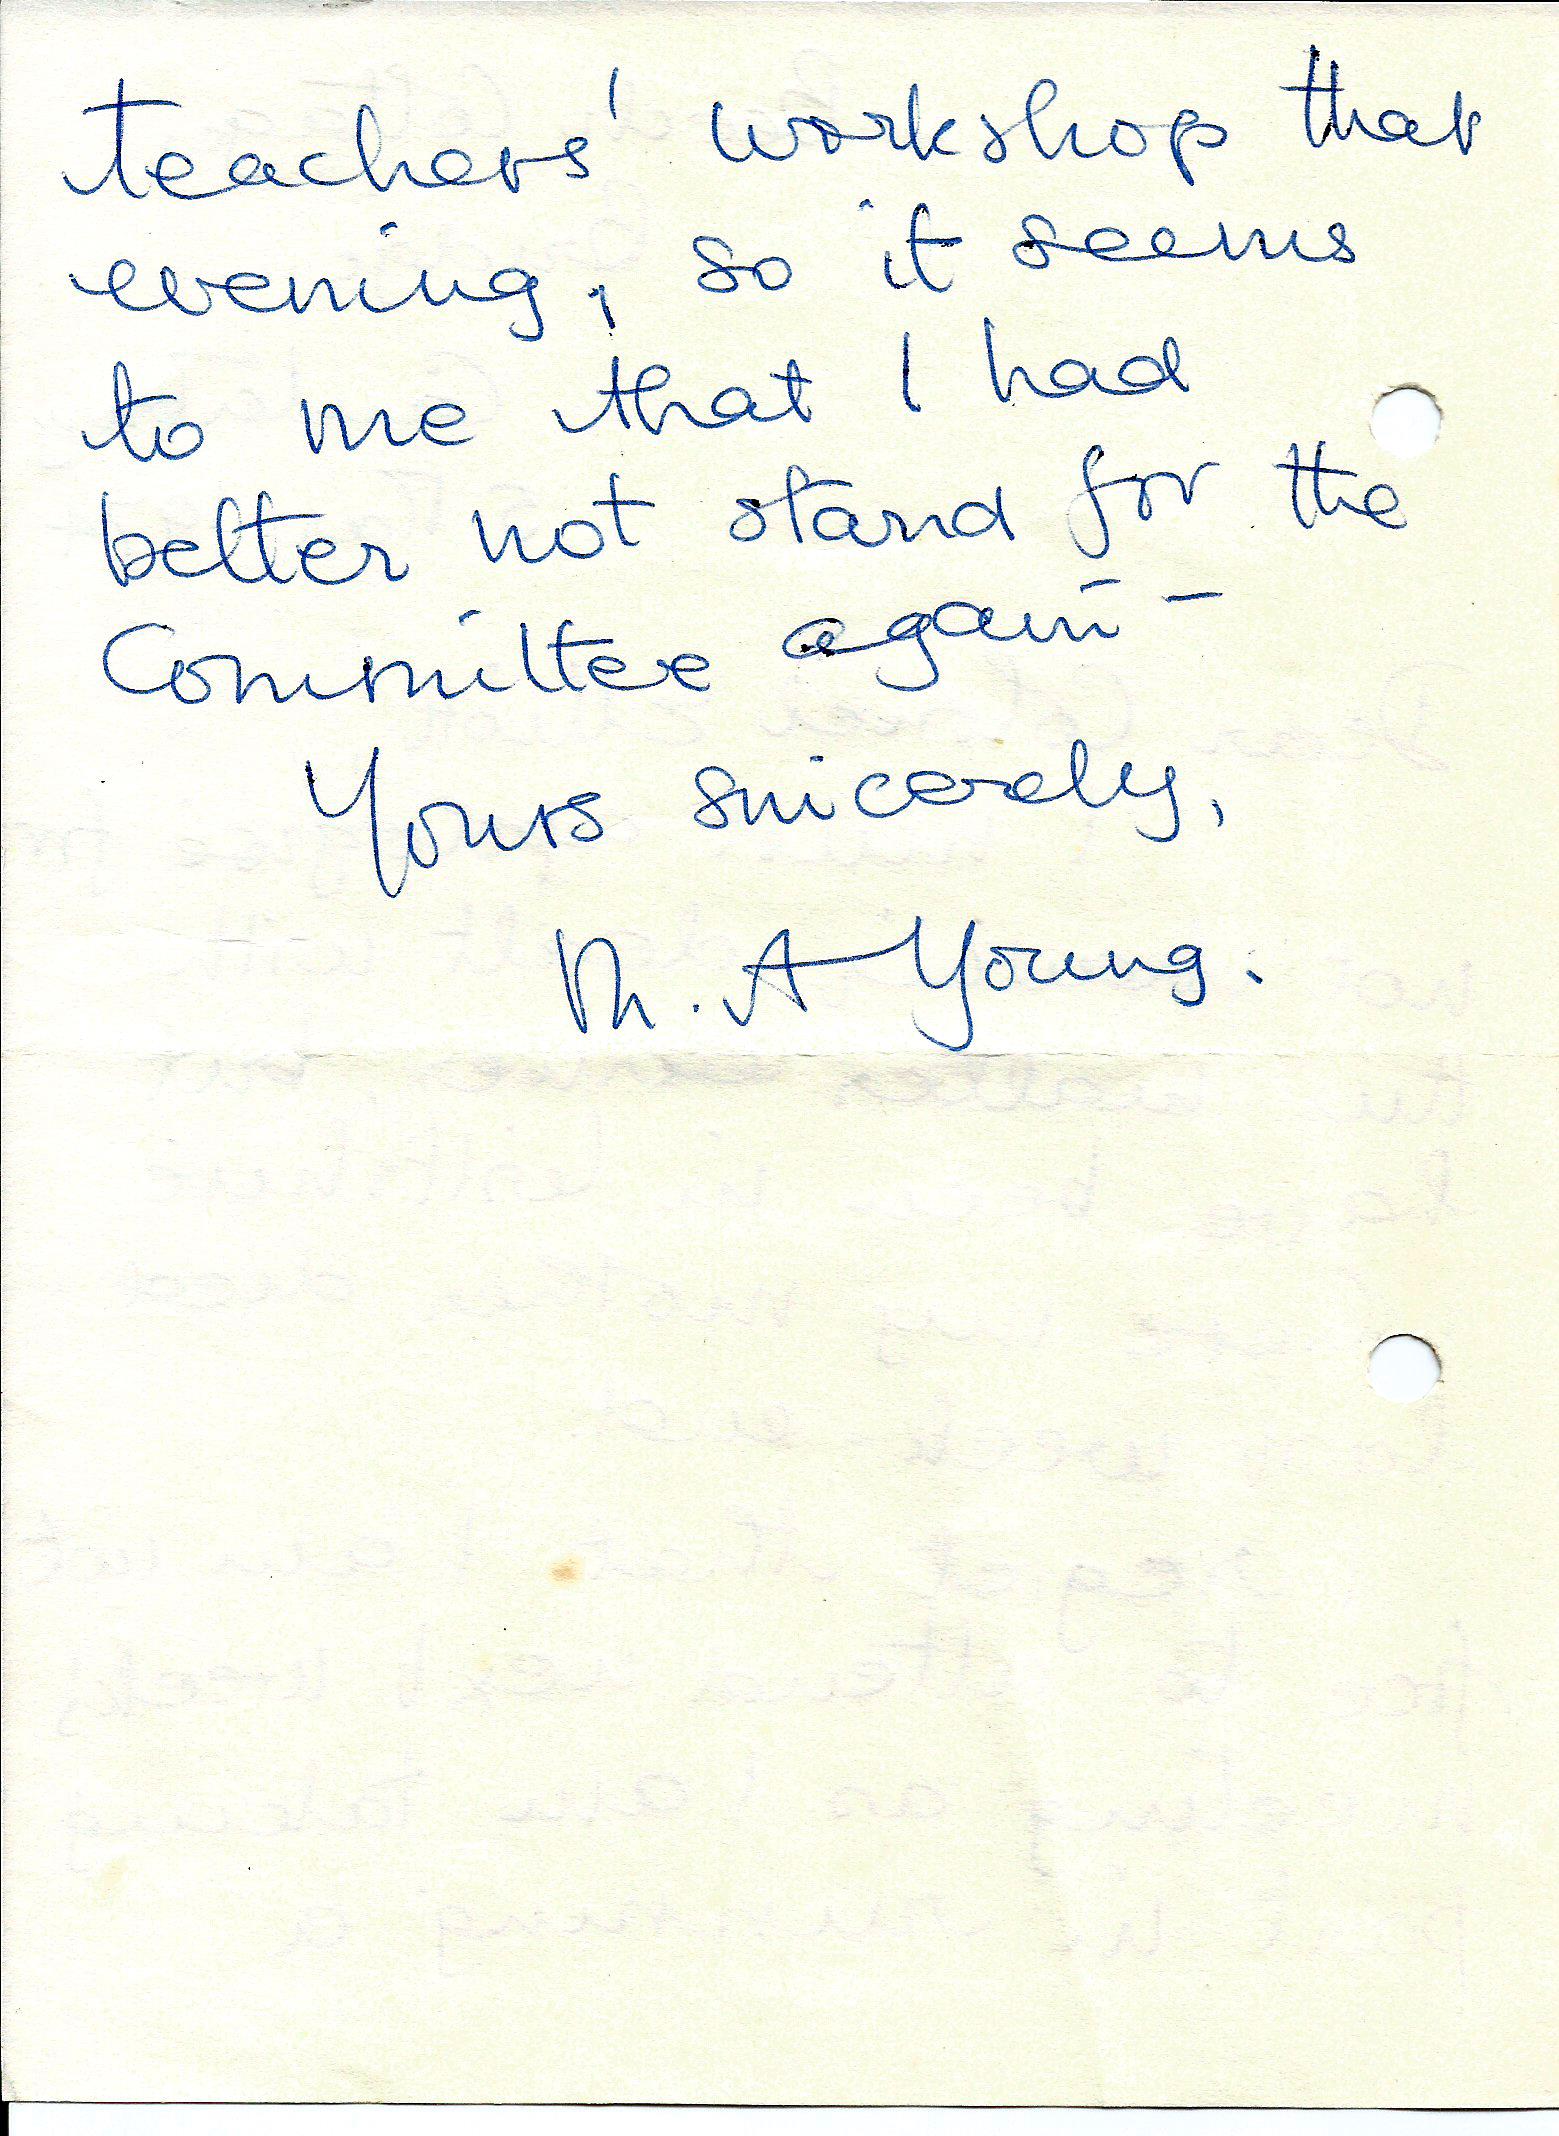 teachers' workshop that
evening, so it seems
to me that I had
better not stand for the
Committee again –
Yours sincerely,
M. A Young.